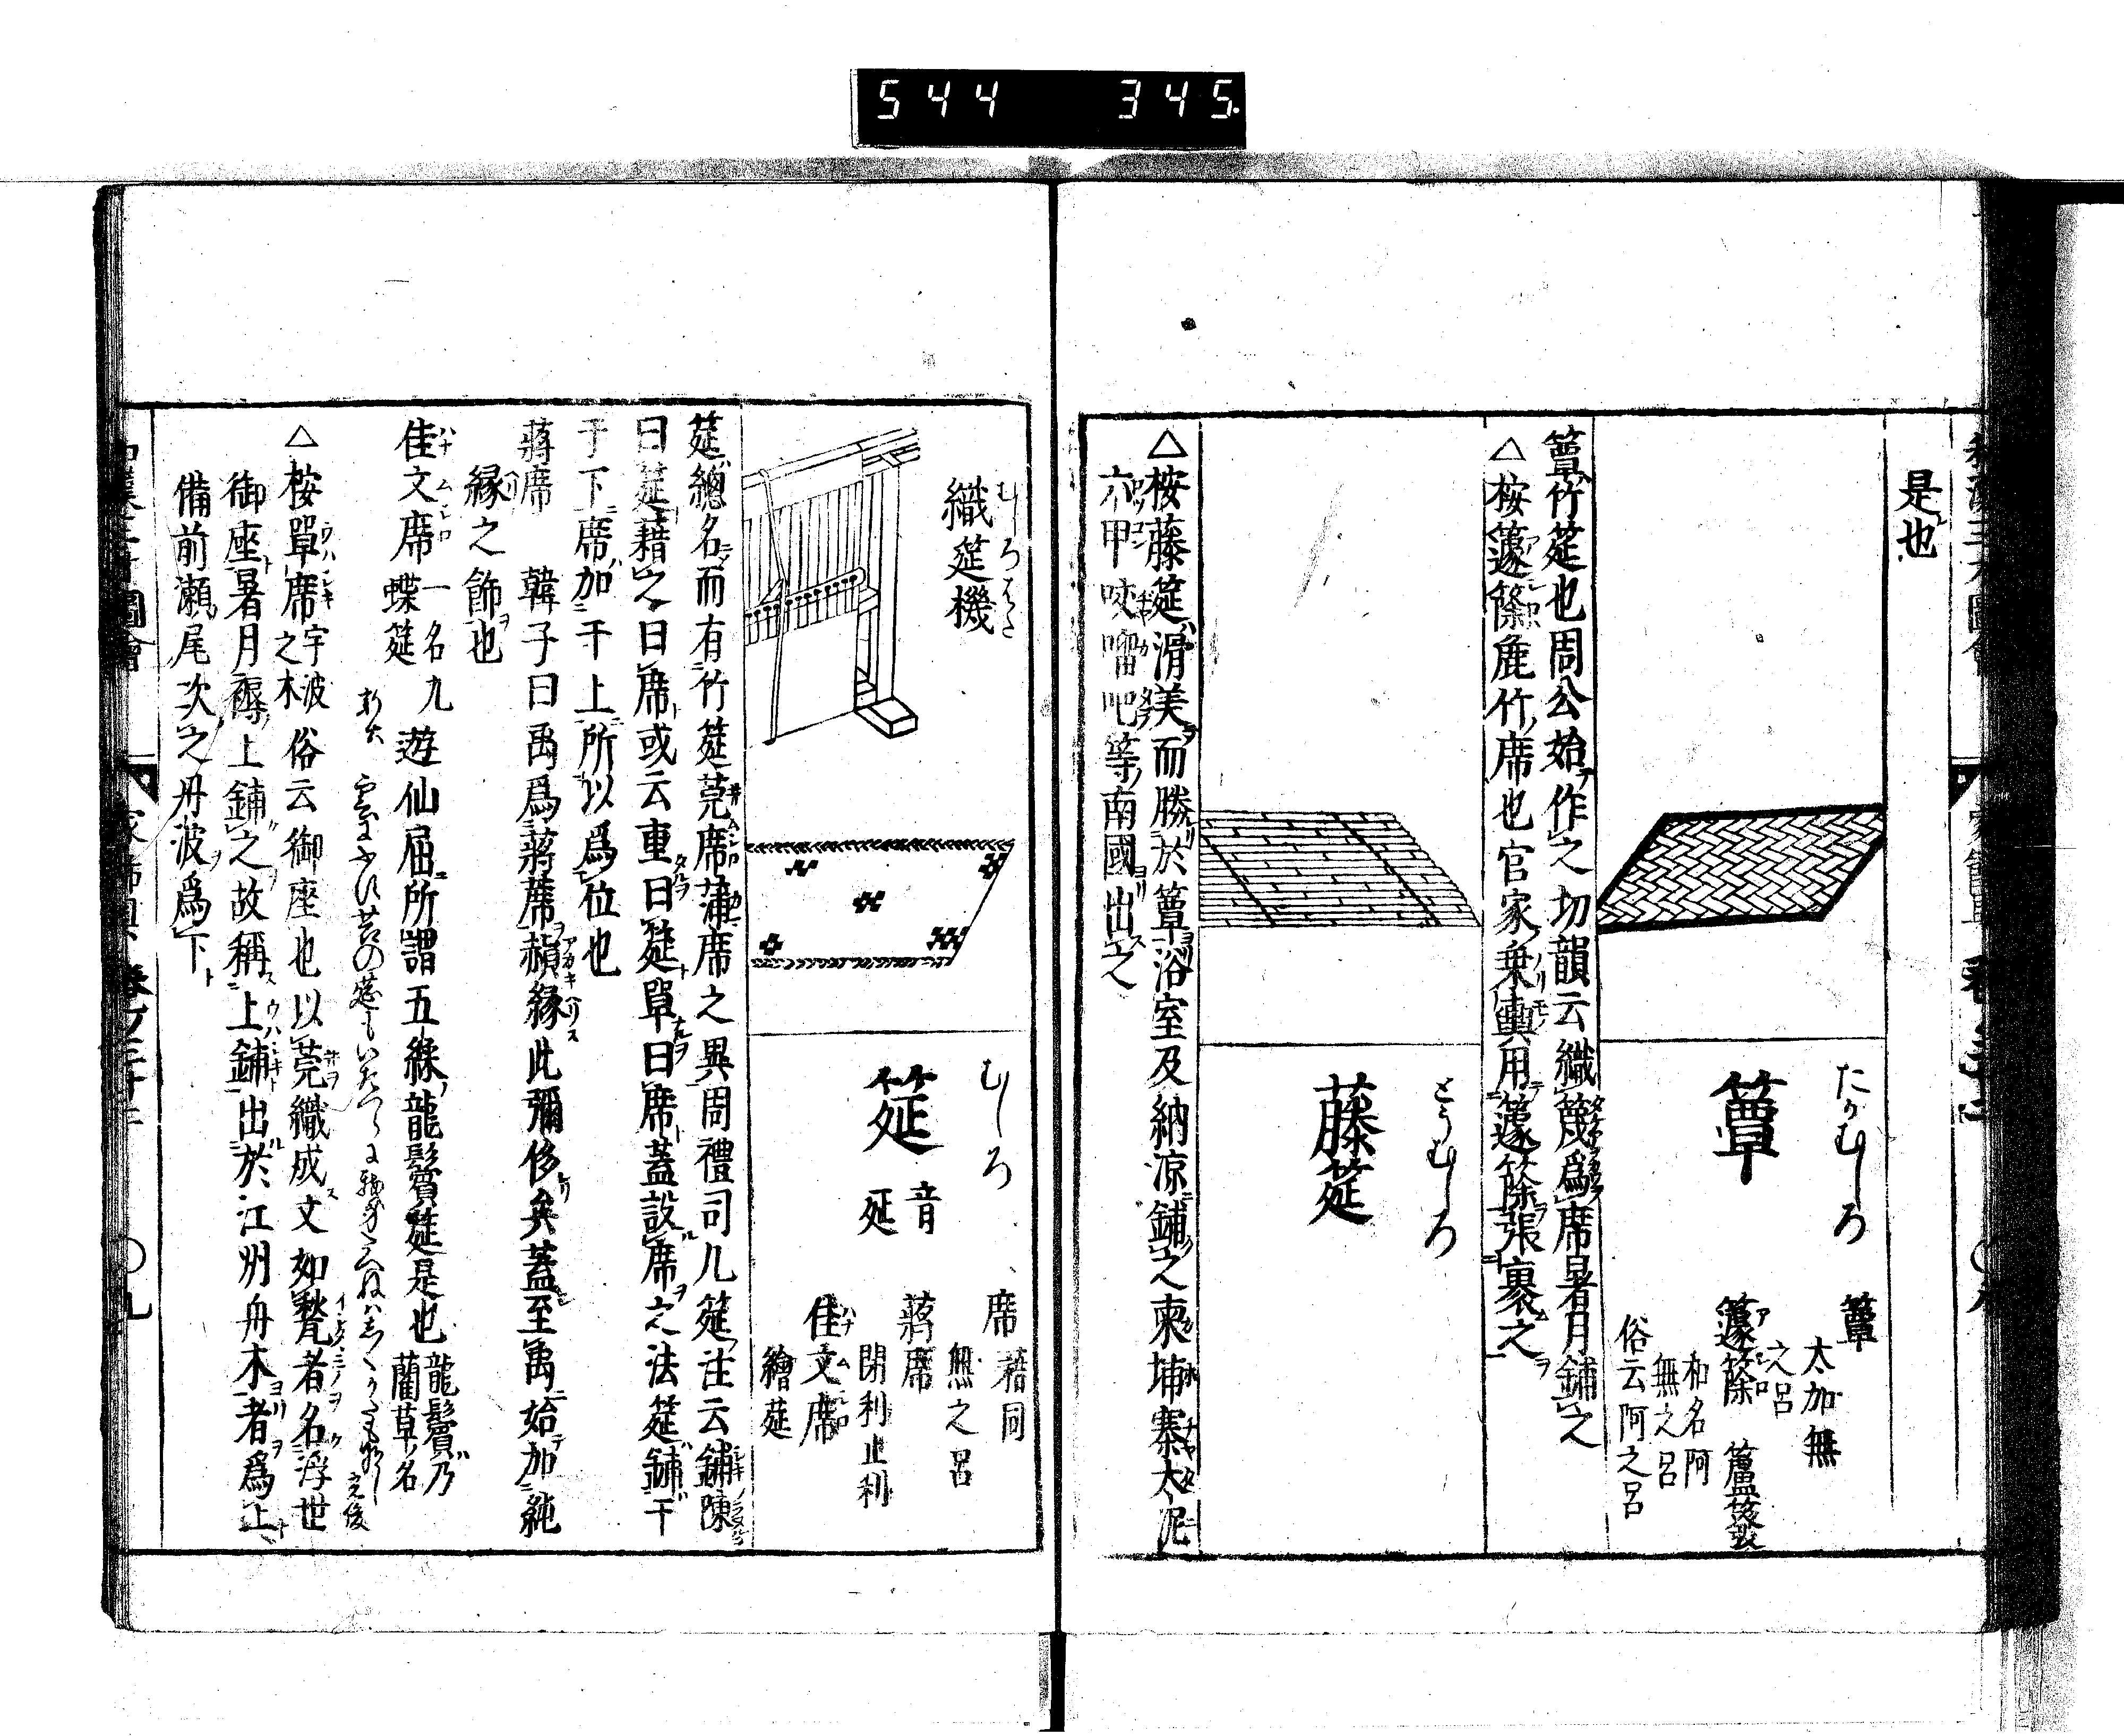 544 345
是也
たかむしろ
簟
簟
太加無
之呂
籧篨 蘆䉬
和名阿
無之呂
俗云阿之呂
簟竹筵也周公始作之切韻云織篾爲席暑月鋪之
△桉籧篨麁竹席也官家乗輿用籧篨張裹之
とうむしろ
藤筵
△桉藤筵滑美而勝於簟浴室及納凉鋪之柬埔寨太泥
六甲咬𠺕吧等南國出之
むしろはた
織筵機
むしろ
筵
音延
席 藉同
無之呂
蔣席
閉利止利
佳文席
繪莚
筵總名而有竹筵莞席蒲席之異周禮司几筵注云鋪陳
曰筵藉之曰席或云重曰筵單曰席蓋設席之法筵鋪于
于下席加于上所以爲位也
蔣席 韓子曰禹爲蔣席頳縁此彌侈矣蓋至禹始加純
縁之飾也
佳文席 一名九蝶筵 遊仙窟所謂五綵龍鬢筵是也 龍鬢乃藺草名
△桉單席 宇波之木 俗云御座也以莞織成文如甃者名浮世
御座暑月褥上鋪之故稱上鋪出於江州舟木者爲上
備前瀬尾次之丹波爲下